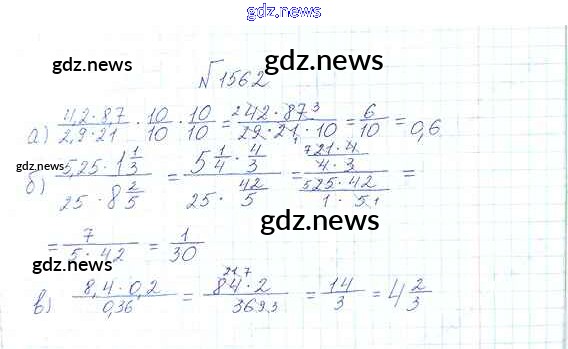 gdz.news
gdz.news
gdz.news
№1562
gdz.news
а) (4,2 · 8,7)/(2,9 · 21) · 10/10 · 10/10 = (42 · 87)/(29 · 21 · 10) = 6/10 = 0,6
gdz.news
gdz.news
б) (5,25 · 1 1/3)/(25 · 8 2/5) = (5 1/4 · 4/3)/(25 · 42/5) = ((21 · 4)/(4 · 3))/((25 · 42)/(1 · 5)) =
gdz.news
= 7/(5 · 42) = 1/30
gdz.news
в) (8,4 · 0,2)/0,36 = (84 · 2)/36 = 14/3 = 4 2/3
gdz.news